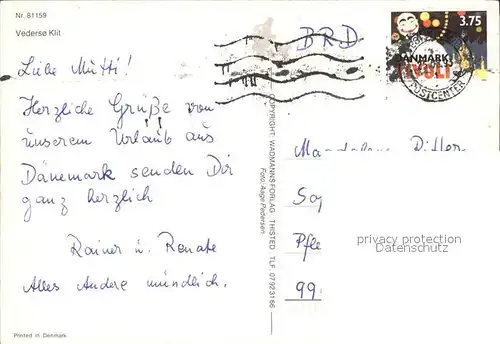 Nr. 81159
Vedersø Klit
Liebe Mutti!
Herzliche Grüße von
unserem Urlaub aus
Dänemark senden Dir
ganz herzlich
Rainer u. Renate
Alles Andere mündlich.
Printed in Denmark
COPYRIGHT: WADMANNSFORLAG THISTED TLF. 07923166
Foto: Aage Pedersen
BRD
3.75
DANMARK
TIVOLI
POSTCENTER
Magdalena
Pfle
99
privacy protection
Datenschutz